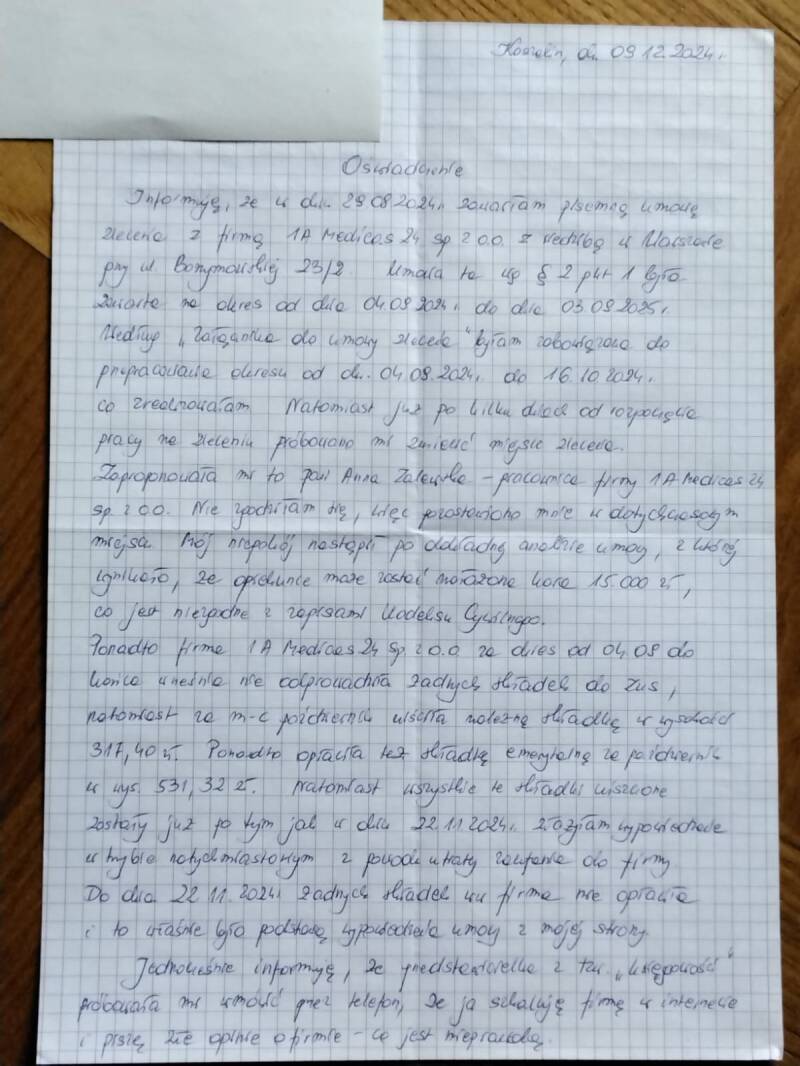 dn. 09.12.2024r.
Oświadczenie
Informuję, że w dn. 29.08.2024r. zawarłam pisemną umowę
zlecenia z firmą 1A Medicas 24 sp z o.o. z siedzibą w Warszawie
przy ul. 23/2. Umowa ta wg § 2 pkt 1 była
zawarta na okres od dnia 04.09.2024r. do dnia 03.09.2025r.
Według „załącznika do umowy zlecenia" byłam zobowiązana do
przepracowania okresu od dn. 04.09.2024r. do 16.10.2024r.
co zrealizowałam. Natomiast już po kilku dniach od rozpoczęcia
pracy na zleceniu próbowano mi zmienić miejsce zlecenia.
Zaproponowała mi to pani Anna Zalewska – pracownica firmy 1A Medicas 24
sp. z o.o. Nie zgodziłam się, więc pozostawiono mnie w dotychczasowym
miejscu. Mój niepokój nastąpił po dokładnej analizie umowy, z której
wynikało, że opiekunce może zostać nałożona kara 15.000 zł,
co jest niezgodne z zapisami Kodeksu Cywilnego.
Ponadto firma 1A Medicas 24 Sp. z o.o za okres od 04.09 do
końca września nie odprowadziła żadnych składek do ZUS,
natomiast za m-c październik uiściła należną składkę w wysokości
317,40 zł. Ponadto opłaciła też składkę emerytalną za październik
w wys. 531,32 zł. Natomiast wszystkie te składki uiszczone
zostały już po tym jak w dniu 22.11.2024r. złożyłam wypowiedzenie
w trybie natychmiastowym z powodu utraty zaufania do firmy.
Do dnia 22.11.2024r. żadnych składek ww firma nie opłaciła
i to właśnie było podstawą wypowiedzenia umowy z mojej strony.
Jednocześnie informuję, że przedstawicielka z tzw. „księgowość"
próbowała mi wmówić przez telefon, że ja szkaluję firmę w internecie
i piszę złe opinie o firmie – co jest nieprawdą.